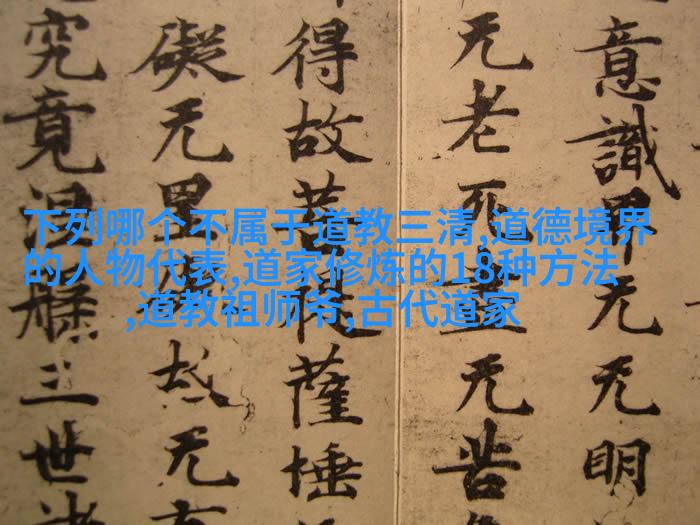 下列哪个不属于道教三清,道德境界
的人物代表,道家修炼的18种方法
,道教祖师爷,古代道家
意識界无无明
无老死盡无苦
得故菩提薩埵
礙无罣故无
究竟涅槃三世諸